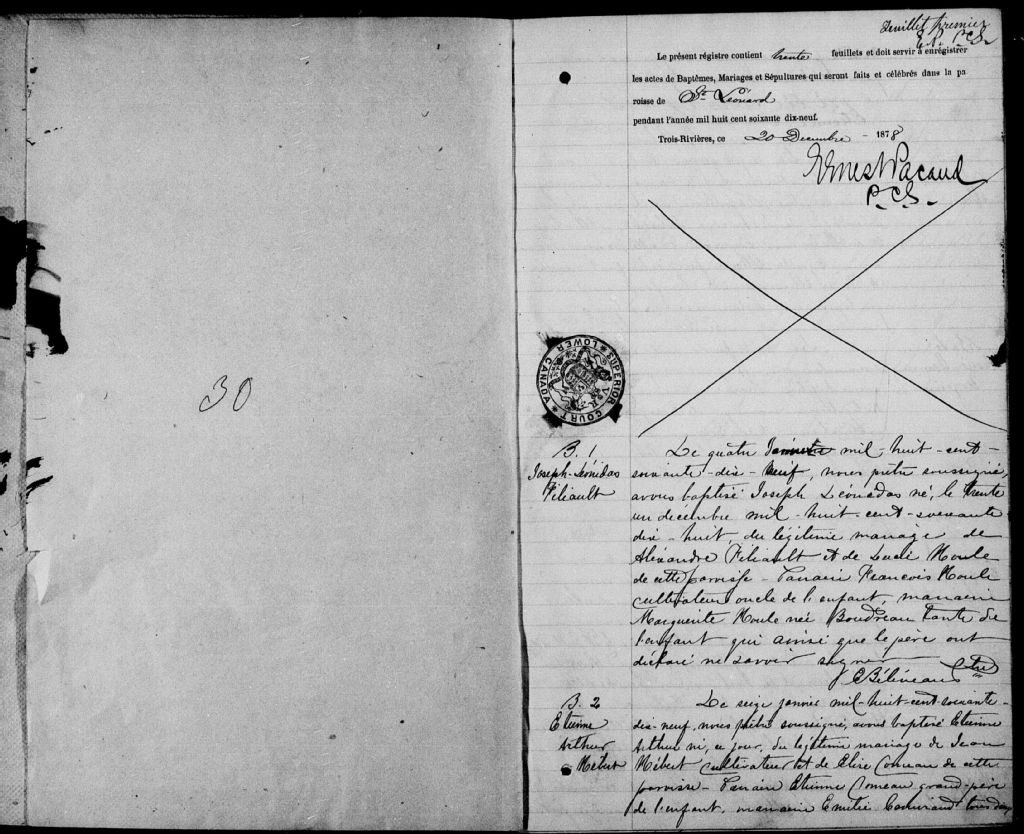 30
Feuillet premier
E.P. P.C.S.
Le présent régistre contient trente feuillets et doit servir à enrégistrer
les actes de Baptêmes, Mariages et Sépultures qui seront faits et célébrés dans la pa
roisse de St Léonard
pendant l'année mil huit cent soixante dix-neuf.
Trois-Rivières, ce 20 Decembre 1878
Ernest Pacaud
P.C.S.
SUPERIOR COURT LOWER CANADA
V R
B. 1
Joseph-Léonidas
Filiault
Le quatre mil-huit-cent-
soixante-dix-neuf, nous prêtre soussigné
avons baptisé Joseph Léonidas né, le trente
un decembre mil-huit-cent-soixante
dix-huit, du légitime mariage de
Alexandre Filiault et de Lucie Houle
de cette paroisse - Parrain François Houle
cultivateur oncle de l'enfant, marraine
Marguerite Houle née Boudreau tante de
l'enfant qui ainsi que le père ont
déclaré ne savoir signer
Béliveau Ptre
B. 2
Etienne
Arthur
Hébert
Le seize janvier mil-huit-cent-soixante-
dix-neuf, nous prêtre soussigné, avons baptisé Etienne
Arthur né, ce jour, du légitime mariage de Jean
Hébert cultivateur et de Elise Comeau de cette
paroisse - Parrain Etienne Comeau grand-père
de l'enfant, marraine Emilie tous deux